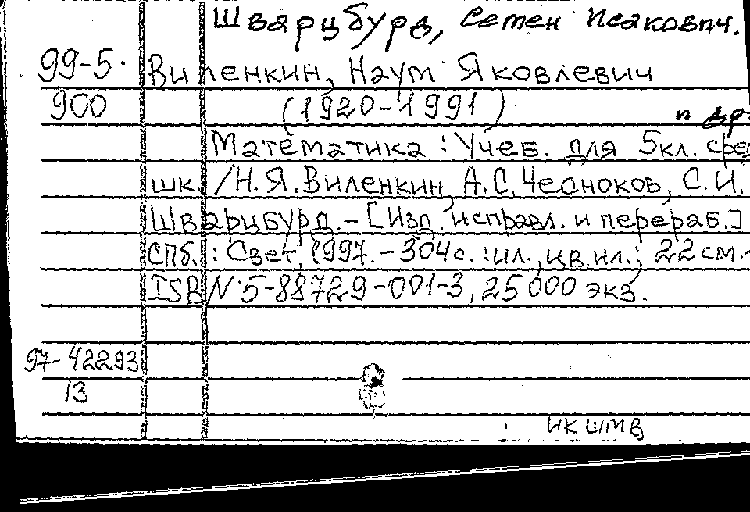 Шварцбурд, Семен Исакович.
99-5. Виленкин, Наум Яковлевич
900 (1920-1991)
и др.
Математика : Учеб. для 5кл. сред
шк. /Н.Я.Виленкин, А.С.Чесноков, С.И.
Шварцбурд. - [Изд. исправл. и перераб.]
СПб. : Свет, 1997. - 304с. : ил., цв.ил.; 22см. -
ISBN 5-88729-001-3, 25000 экз.
97-42293
13